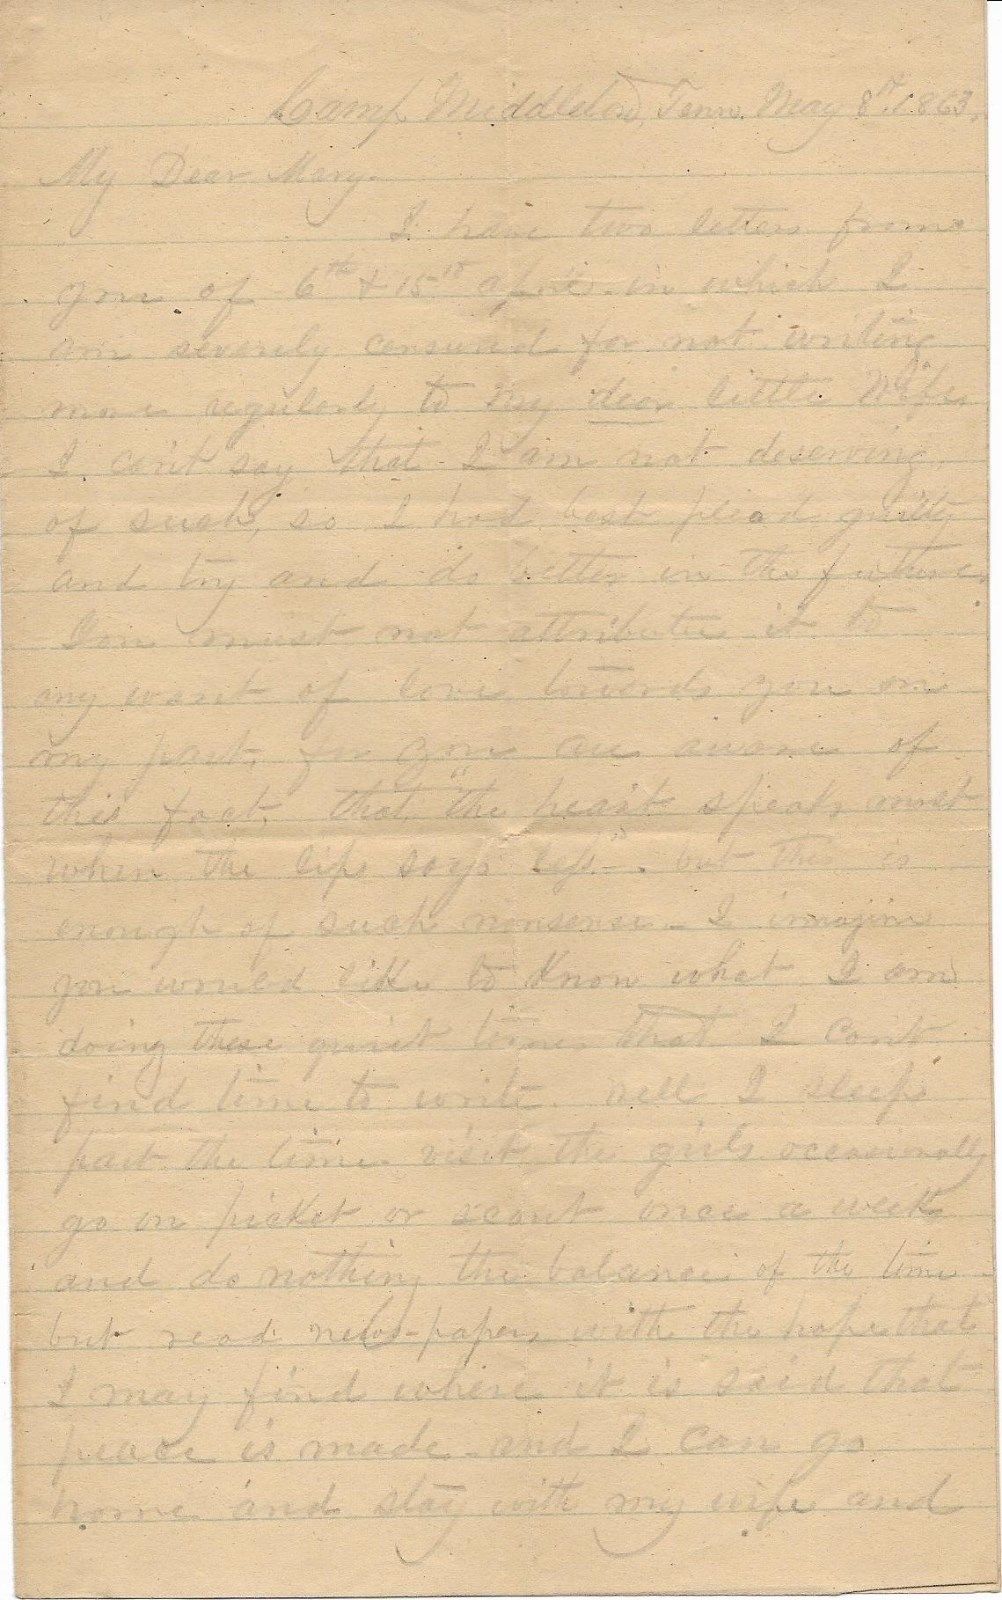 Camp Middleton, Tenn. May 8th 1863.
My Dear Mary.
I have two letters from
you of 6th & 15th in which I
am severely censured for not writing
more regularly to my dear little Wife
I can't say that I am not deserving
of such, so I had best plead guilty
and try and do better in the future
You must not attribute it to
any want of love towards you on
my part, for you are aware of
this fact, that "the heart speaks most
when the lips says less". but this is
enough of such nonsense - I imagine
you would like to know what I am
doing these quiet times that I can't
find time to write. well I sleep
part the time visit the girls occasionally
go on picket or scout once a week
and do nothing the balance of the time
but read news-papers with the hope that
I may find where it is said that
peace is made and I can go
home and stay with my wife and